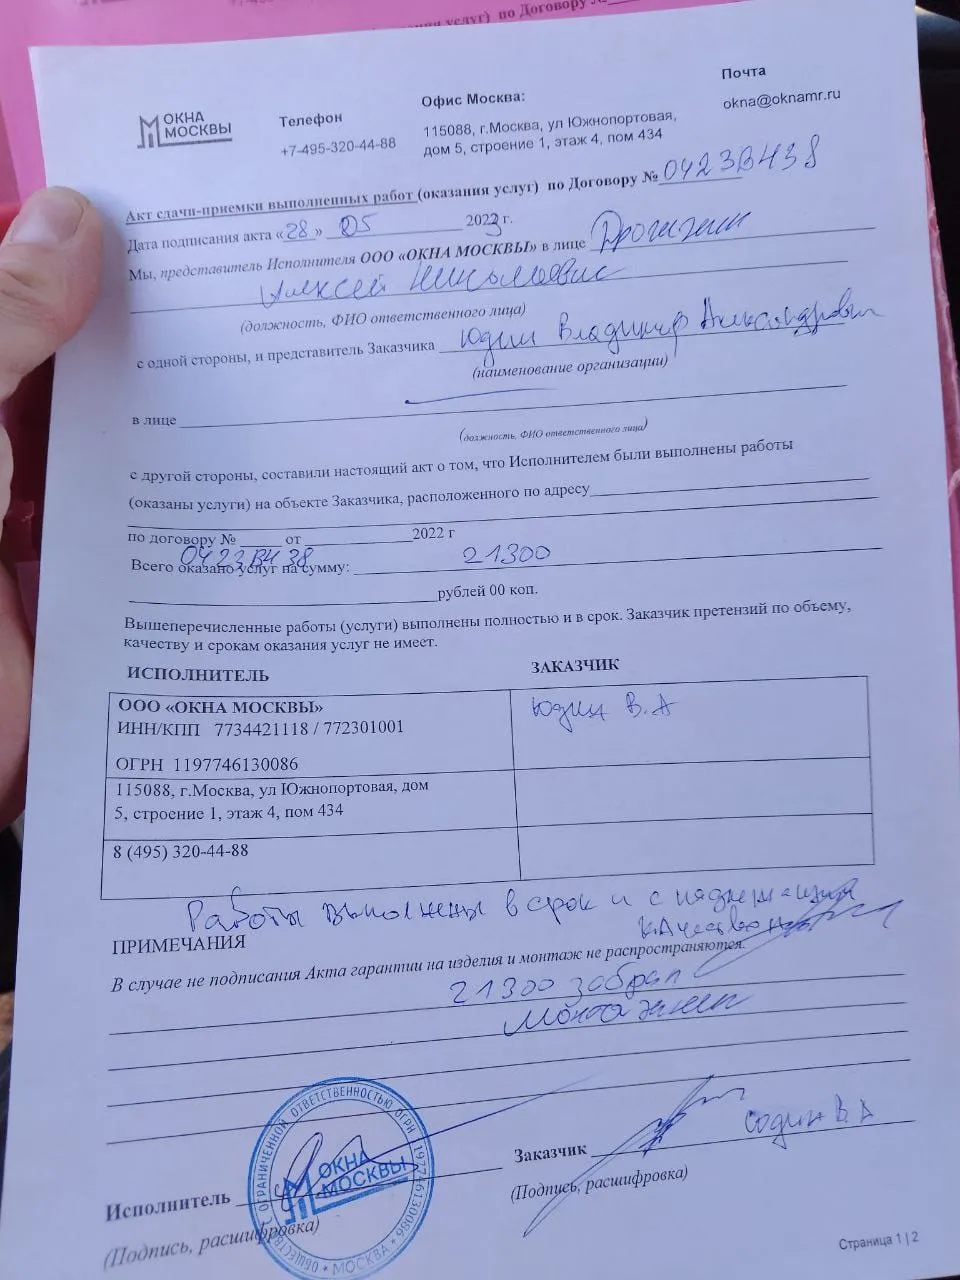 ОКНА
МОСКВЫ
Телефон
+7-495-320-44-88
Офис Москва:
115088, г.Москва, ул Южнопортовая,
дом 5, строение 1, этаж 4, пом 434
Почта
okna@oknamr.ru
Акт сдачи-приемки выполненных работ (оказания услуг) по Договору № 0423В438
Дата подписания акта «28» 05 2023 г.
Мы, представитель Исполнителя ООО «ОКНА МОСКВЫ» в лице
Алексей Николаевич
(должность, ФИО ответственного лица)
с одной стороны, и представитель Заказчика Юдин Владимир Александрович
(наименование организации)
в лице
(должность, ФИО ответственного лица)
с другой стороны, составили настоящий акт о том, что Исполнителем были выполнены работы
(оказаны услуги) на объекте Заказчика, расположенного по адресу
по договору № от 2022 г
0423В438
Всего оказано услуг на сумму: 21300
рублей 00 коп.
Вышеперечисленные работы (услуги) выполнены полностью и в срок. Заказчик претензий по объему,
качеству и срокам оказания услуг не имеет.
ИСПОЛНИТЕЛЬ
ЗАКАЗЧИК
ООО «ОКНА МОСКВЫ»
ИНН/КПП 7734421118 / 772301001
ОГРН 1197746130086
Юдин В.А
115088, г.Москва, ул Южнопортовая, дом
5, строение 1, этаж 4, пом 434
8 (495) 320-44-88
Работы выполнены в срок и с надлежащим
качеством
ПРИМЕЧАНИЯ
В случае не подписания Акта гарантии на изделия и монтаж не распространяются.
21300 забрал
монтажник
Исполнитель
(Подпись, расшифровка)
ОБЩЕСТВО С ОГРАНИЧЕННОЙ ОТВЕТСТВЕННОСТЬЮ ОГРН 1197746130086
* МОСКВА *
ОКНА
МОСКВЫ
Заказчик Юдин В.А
(Подпись, расшифровка)
Страница 1 | 2